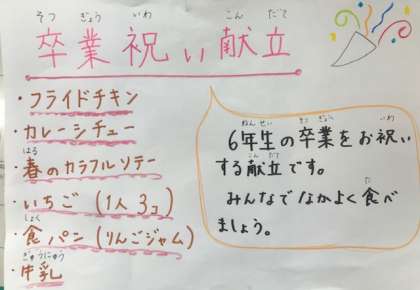 そつ ぎょう いわ こん だて
卒業祝い献立
・フライドチキン
・カレーシチュー
はる
・春のカラフルソテー
・いちご（1人3コ）
しょく
・食パン（りんごジャム）
ぎゅうにゅう
・牛乳
ねん せい そつ ぎょう いわ
6年生の卒業をお祝い
こん だて
する献立です。
た
みんなでなかよく食べ
ましょう。